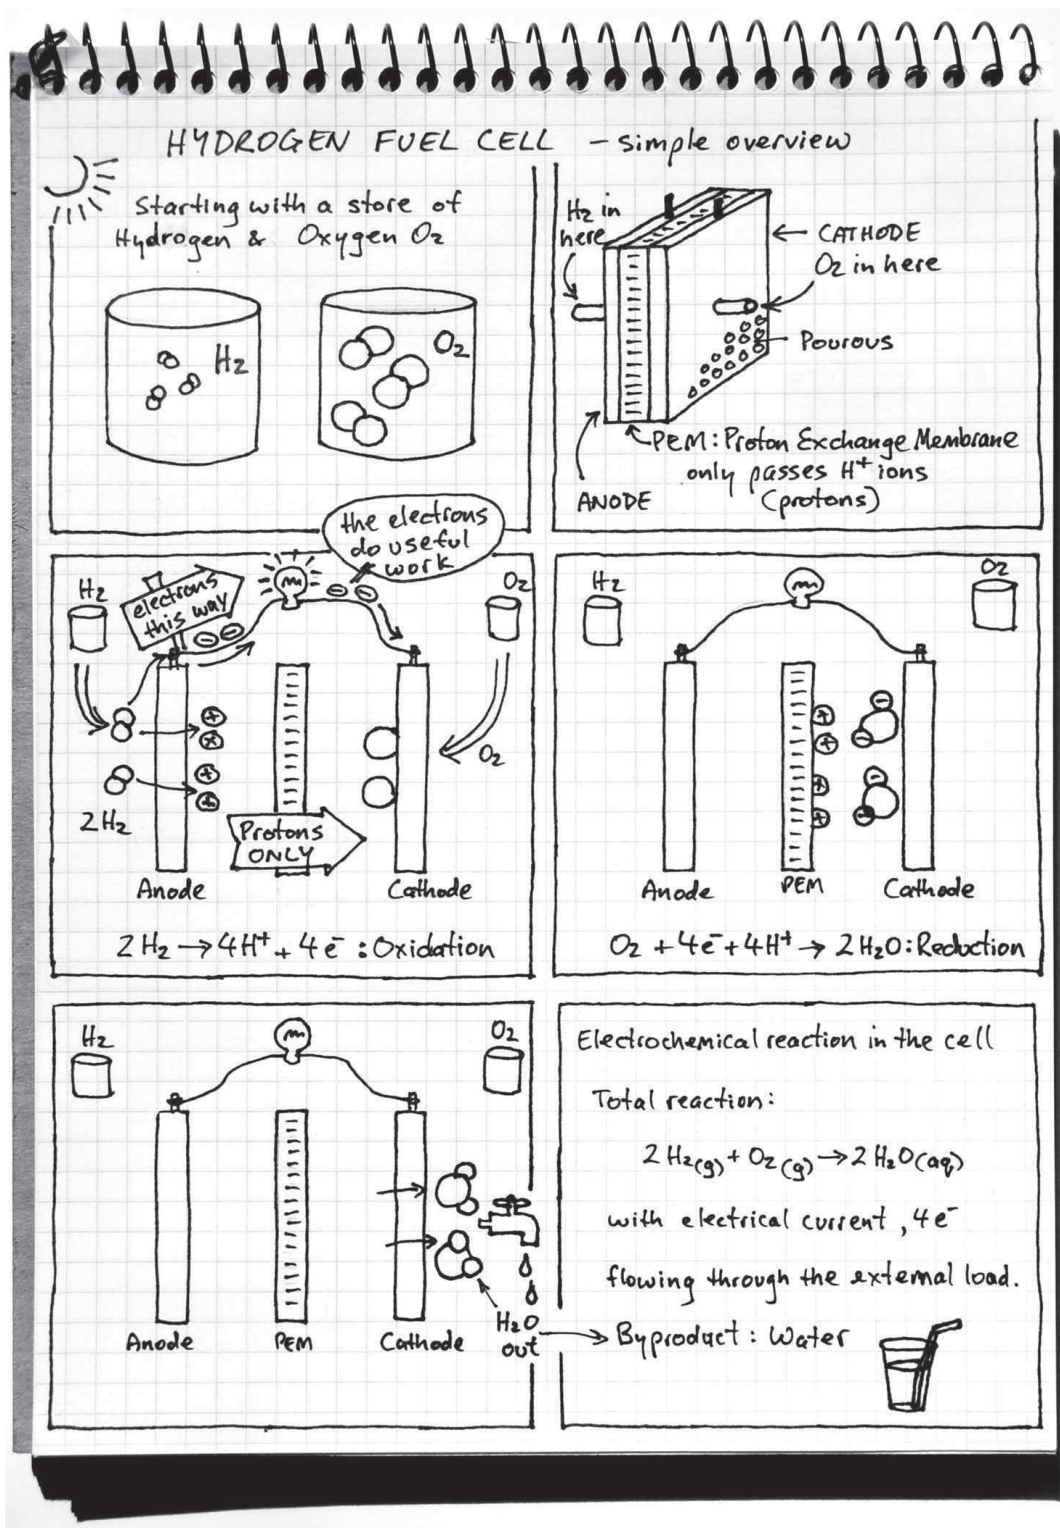 HYDROGEN FUEL CELL – simple overview
Starting with a store of
Hydrogen & Oxygen O₂
H₂
O₂
H₂ in
here
CATHODE
O₂ in here
Pourous
PEM: Proton Exchange Membrane
only passes H⁺ ions
(protons)
ANODE
the electrons
do useful
work
H₂
electrons
this way
O₂
O₂
2H₂
Protons
ONLY
Anode
Cathode
2H₂ → 4H⁺ + 4e⁻ : Oxidation
H₂
O₂
Anode
PEM
Cathode
O₂ + 4e⁻ + 4H⁺ → 2H₂O : Reduction
H₂
O₂
Anode
PEM
Cathode
H₂O
out
Electrochemical reaction in the cell
Total reaction:
2H₂(g) + O₂(g) → 2H₂O(aq)
with electrical current, 4e⁻
flowing through the external load.
Byproduct: Water